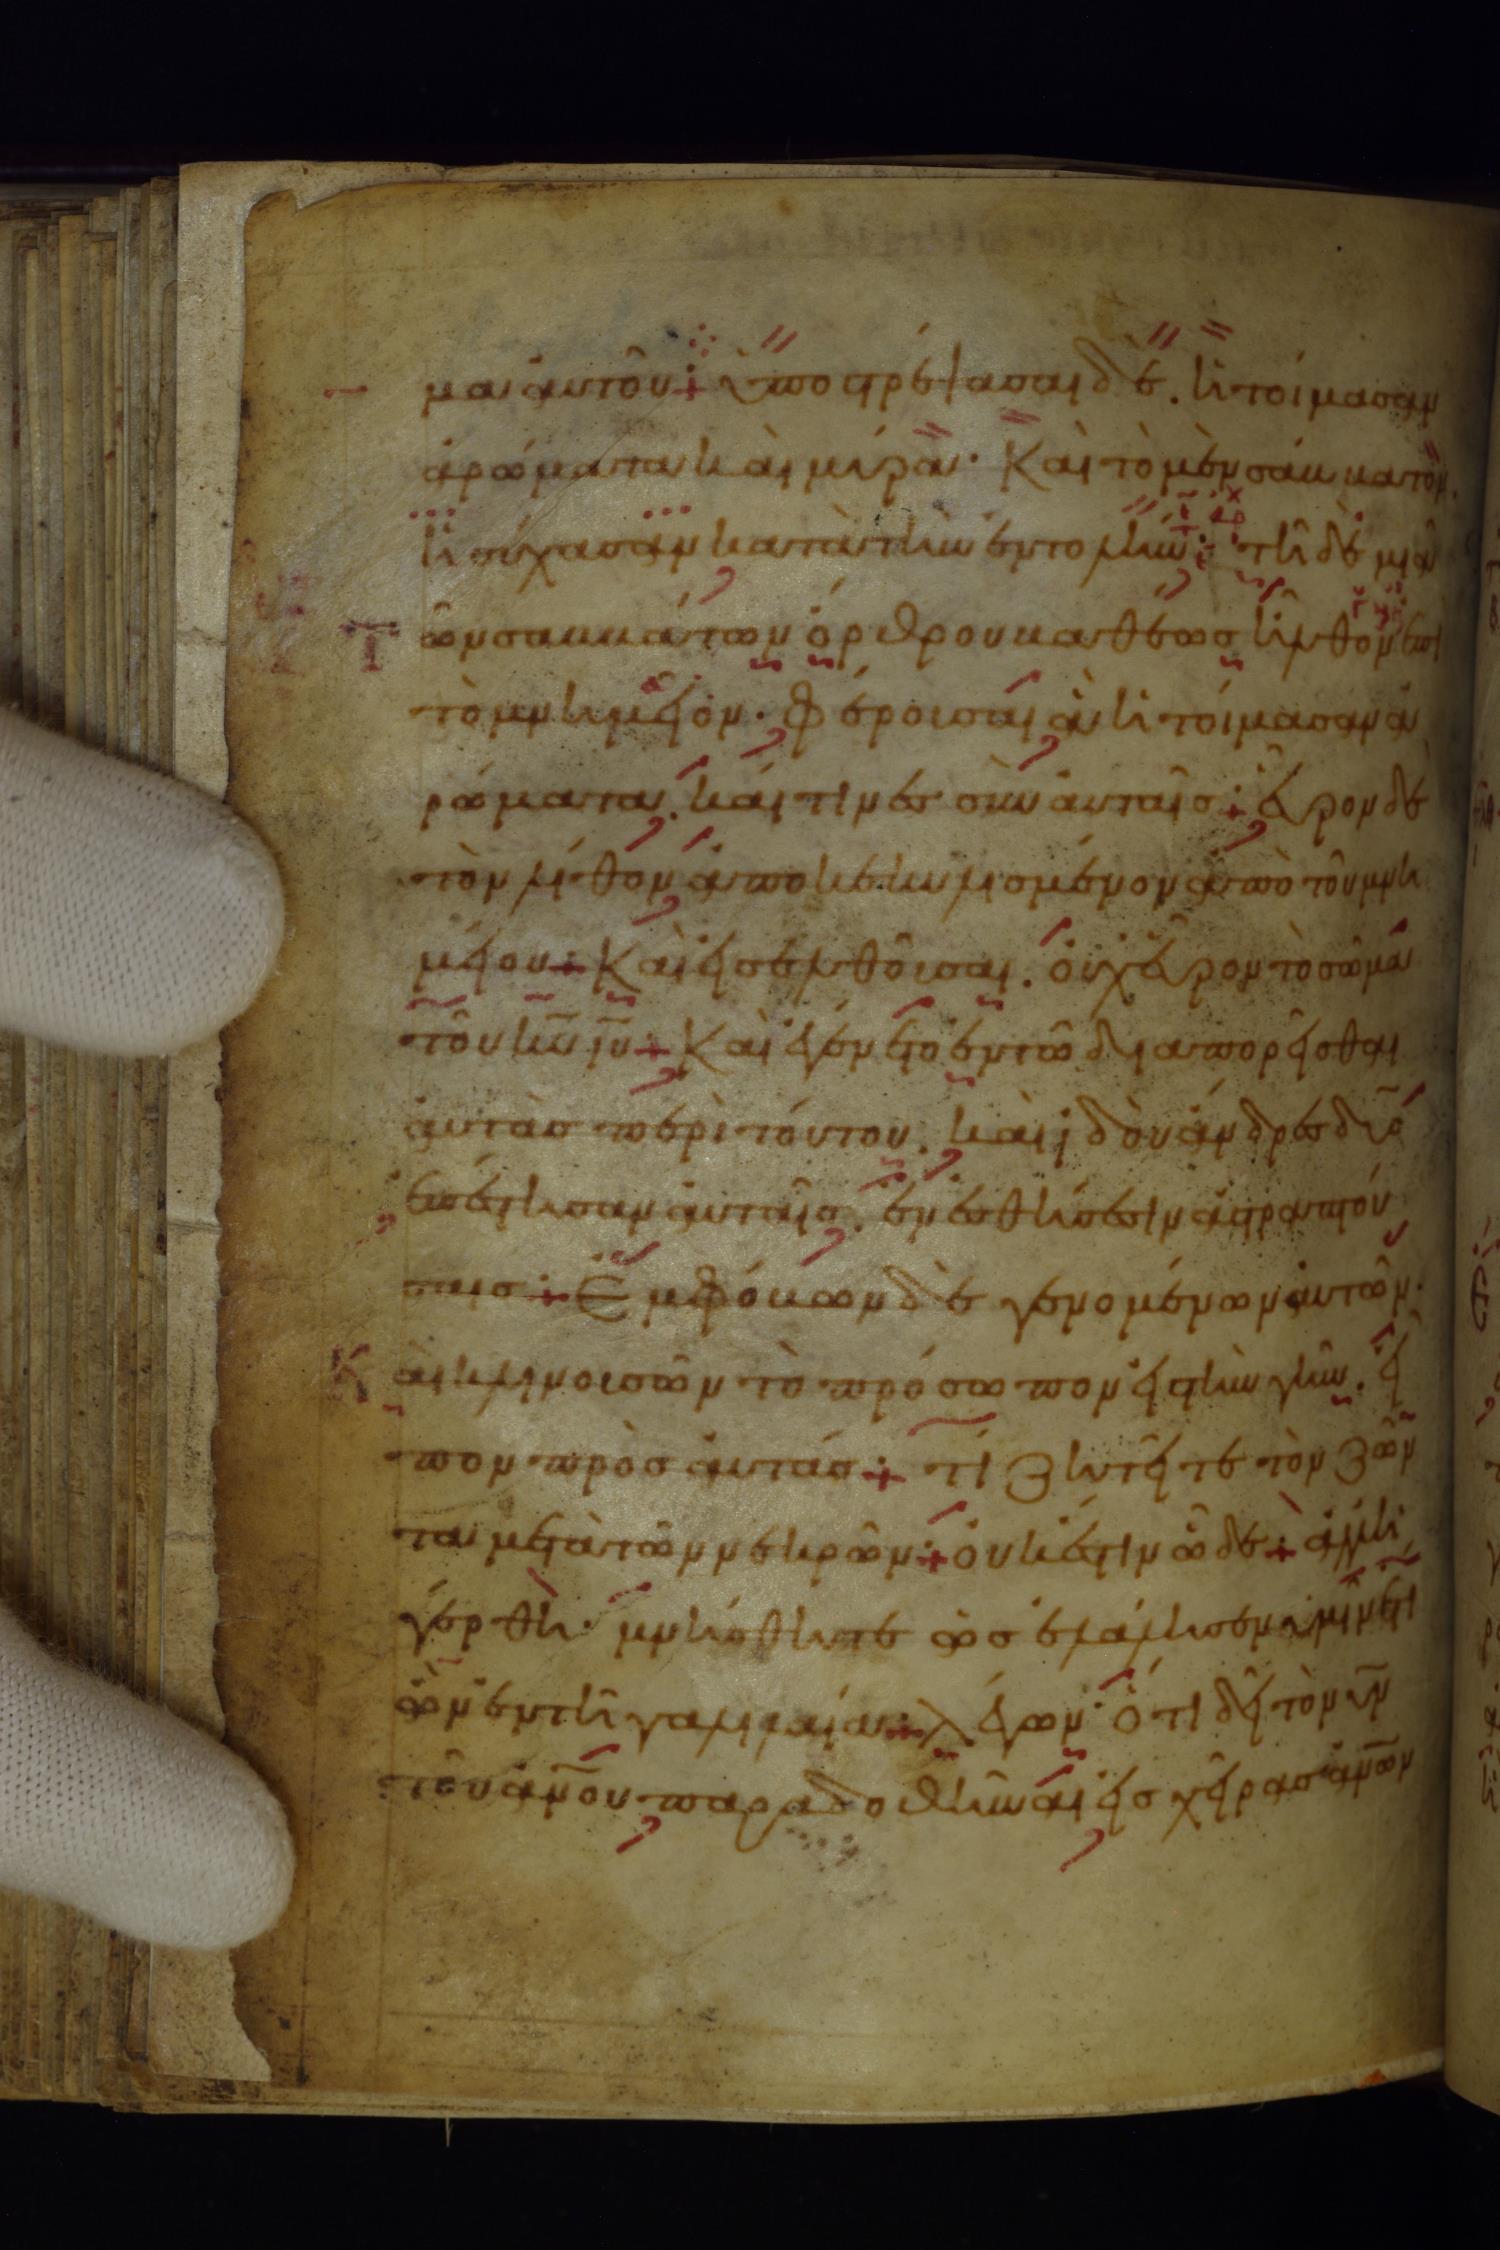 μα αὐτοῦ⁘ ὑποστρέψασαι δὲ. ἡτοίμασαν
ἀρώματα καὶ μύρα· Καὶ τὸ μὲν σάκκατον.
ἡσύχασαν κατὰ τὴν ἐντολήν⁘ τῆ δὲ μιᾶ
Τῶν σακκάτων ὄρθρου καθέως ἦλθον ἐπὶ
τὸ μνημεῖον· Φέροισαι ἃ ἡτοίμασαν ἀ
ρώματα. καί τινες σὺν αὐταῖς⁘ εὗρον δὲ
τὸν λίθον ἀποκεκυλισμένον ἀπὸ τοῦ μνη
μείου⁘ Καὶ εἰσελθοῖσαι. οὐχ εὗρον τὸ σῶμα
τοῦ κ̅υ̅ ι̅υ̅⁘ Καὶ ἐγένετο ἐν τῶ διαπορεῖσθαι
αὐτὰς περὶ τούτου. καὶ ἰδοὺ ἄνδρες δύο
ἐπέστησαν αὐταῖς. ἐν ἐσθήσεσιν ἀστραπτού
σαις⁘ Ἐμφόκων δὲ γενομένων αὐτῶν·
Καὶ κλινοισῶν τὸ πρόσωπον εἰς τὴν γῆν. εἶ
πον πρὸς αὐτάς⁘ τί ζητεῖτε τὸν ζῶν
τα μετὰ τῶν νεκρῶν⁘ οὐκ ἔστιν ὧδε⁘ ἀλλ ἠ
γέρθη· μνήσθητε ὡς ἐλάλησεν ὑμῖν ἔτι
ὢν ἐν τῆ γαλιλαία⁘ λέγων· ὅτι δεῖ τὸν υ̅ν̅
τοῦ ἀν̅ου παραδοθῆναι εἰς χεῖρας ἀν̅ων